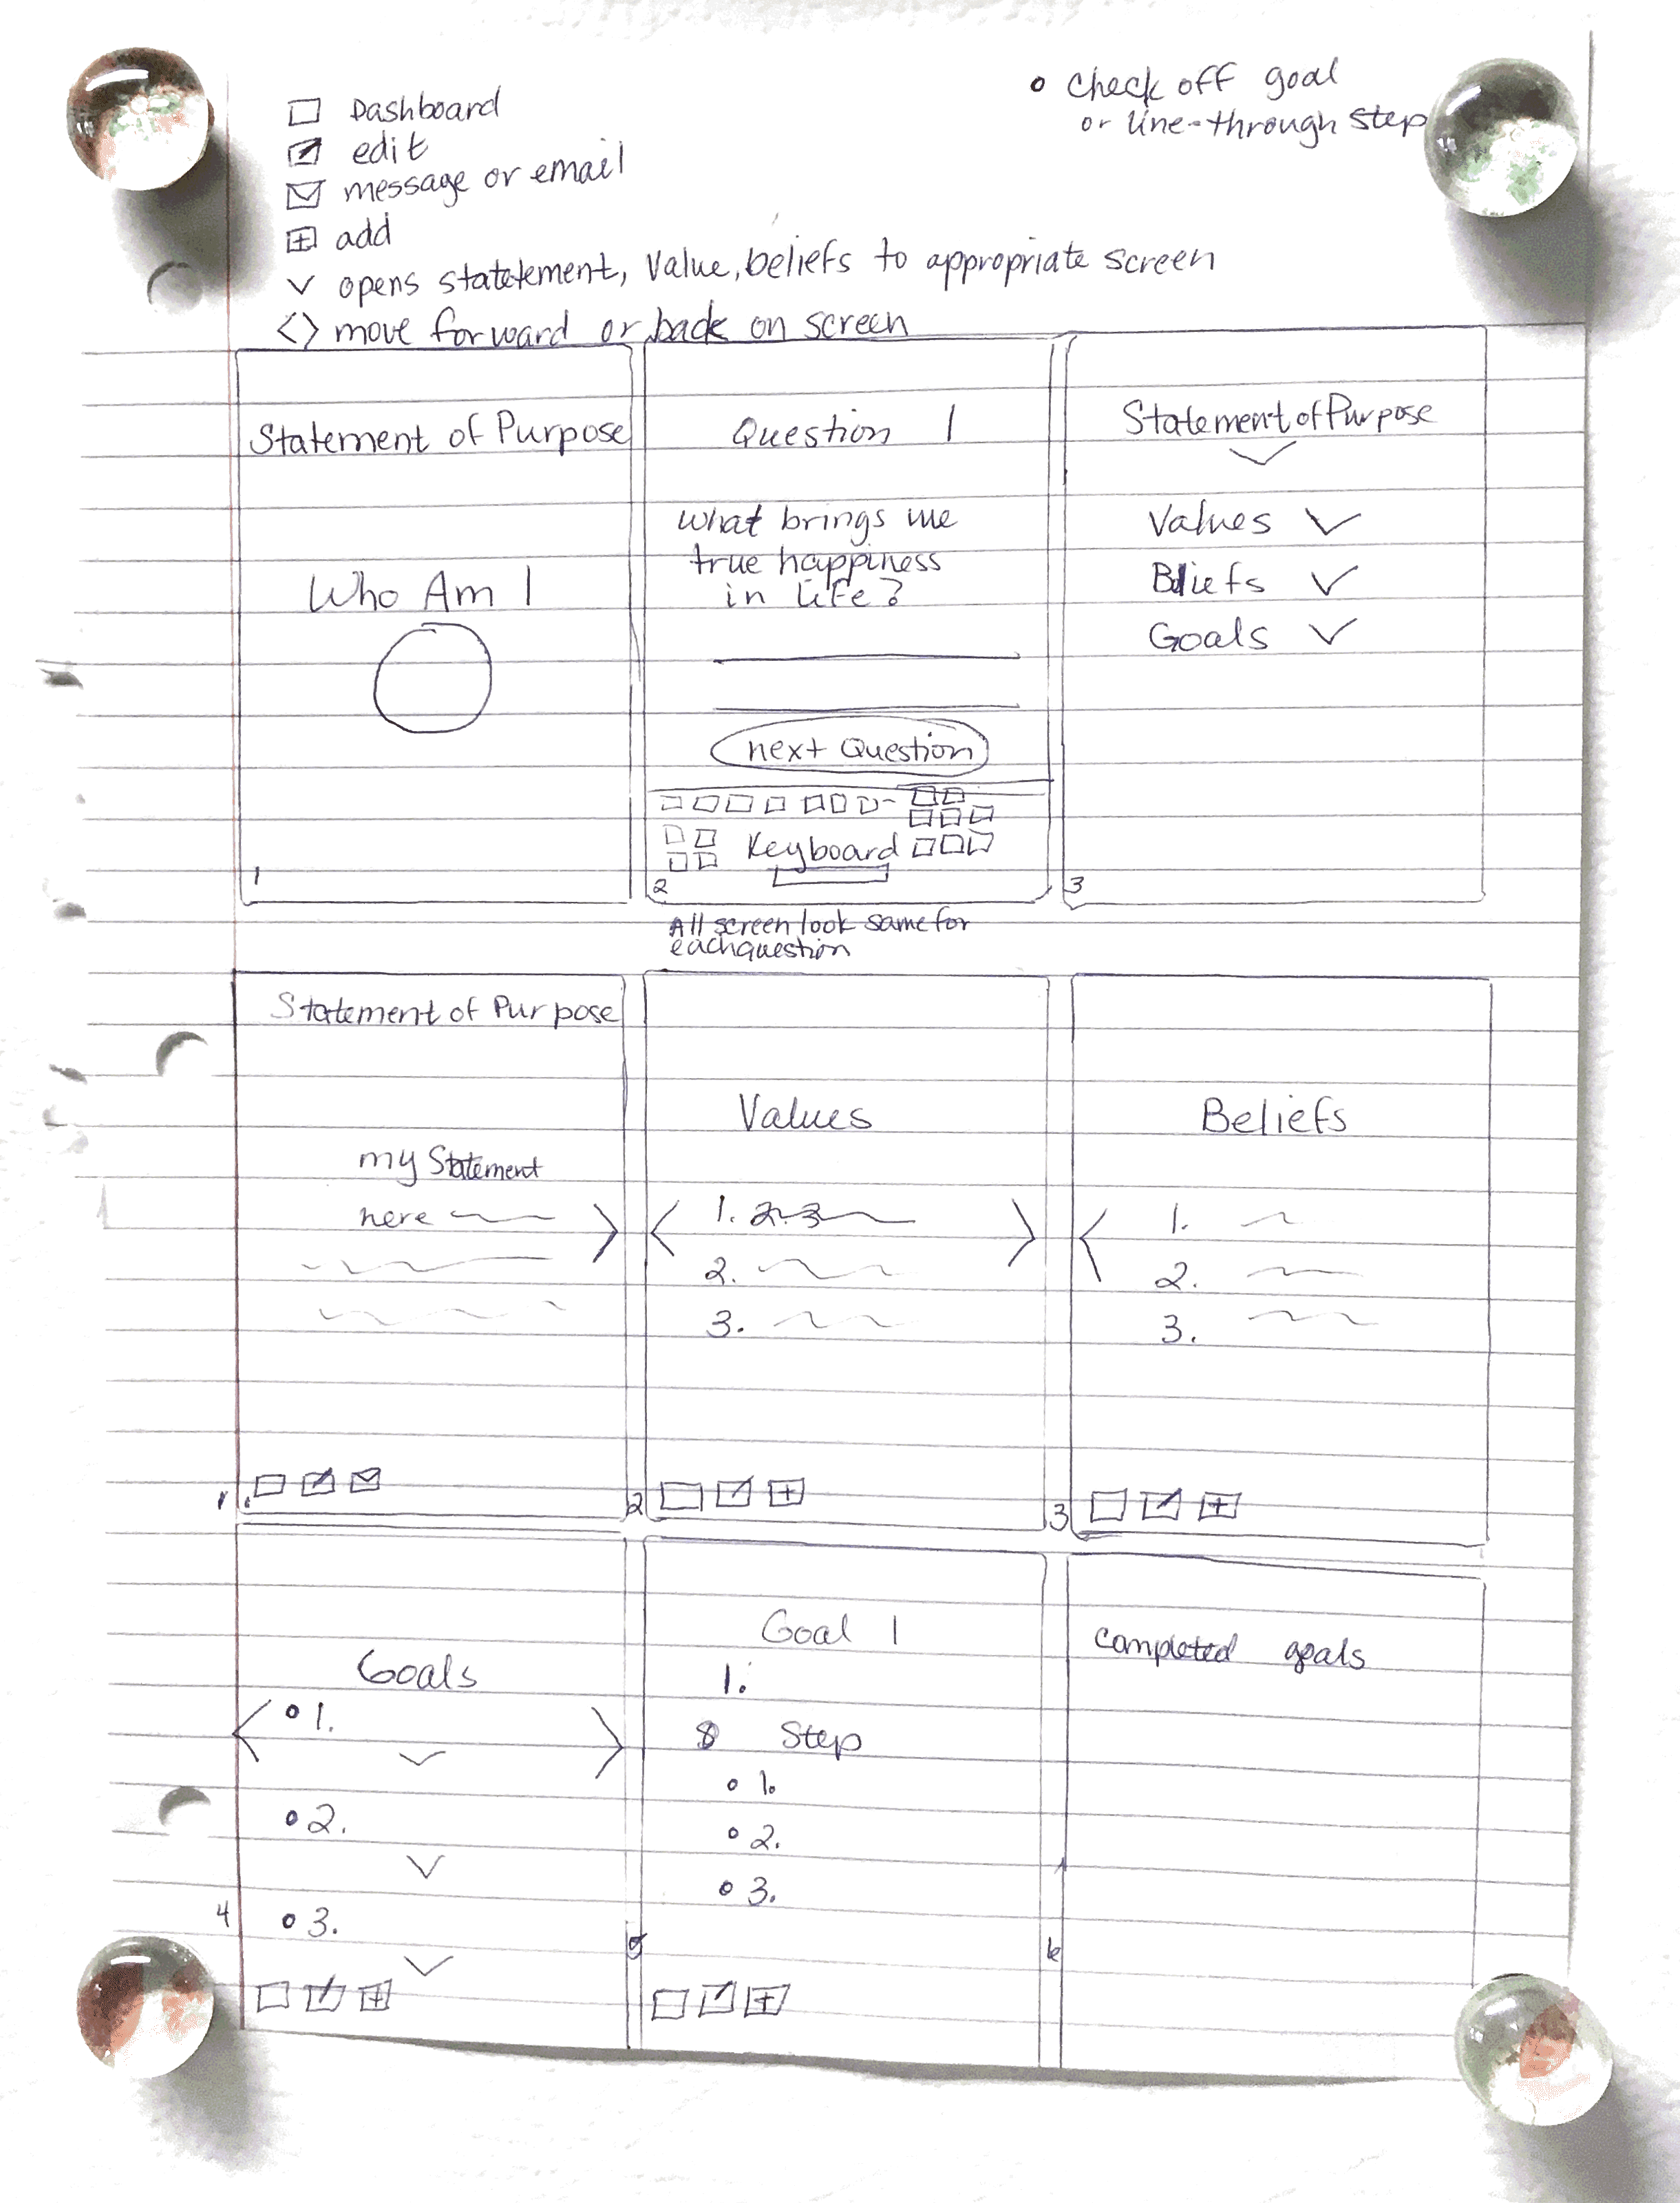 Dashboard
edit
message or email
add
opens statetement, Value, beliefs to appropriate screen
<> move forward or back on screen
• check off goal
or line-through step
Statement of Purpose
Who Am I
1
Question 1
What brings me
true happiness
in life?
next Question
Keyboard
2
All screen look same for
each question
Statement of Purpose
Values
Beliefs
Goals
3
Statement of Purpose
my Statement
here
>
1.
Values
< 1. 2. 3 >
2.
3.
2
Beliefs
< 1.
2.
3.
3
Goals
< • 1. >
• 2.
• 3.
4
Goal 1
1.
Step
• 1.
• 2.
• 3.
5
completed goals
6